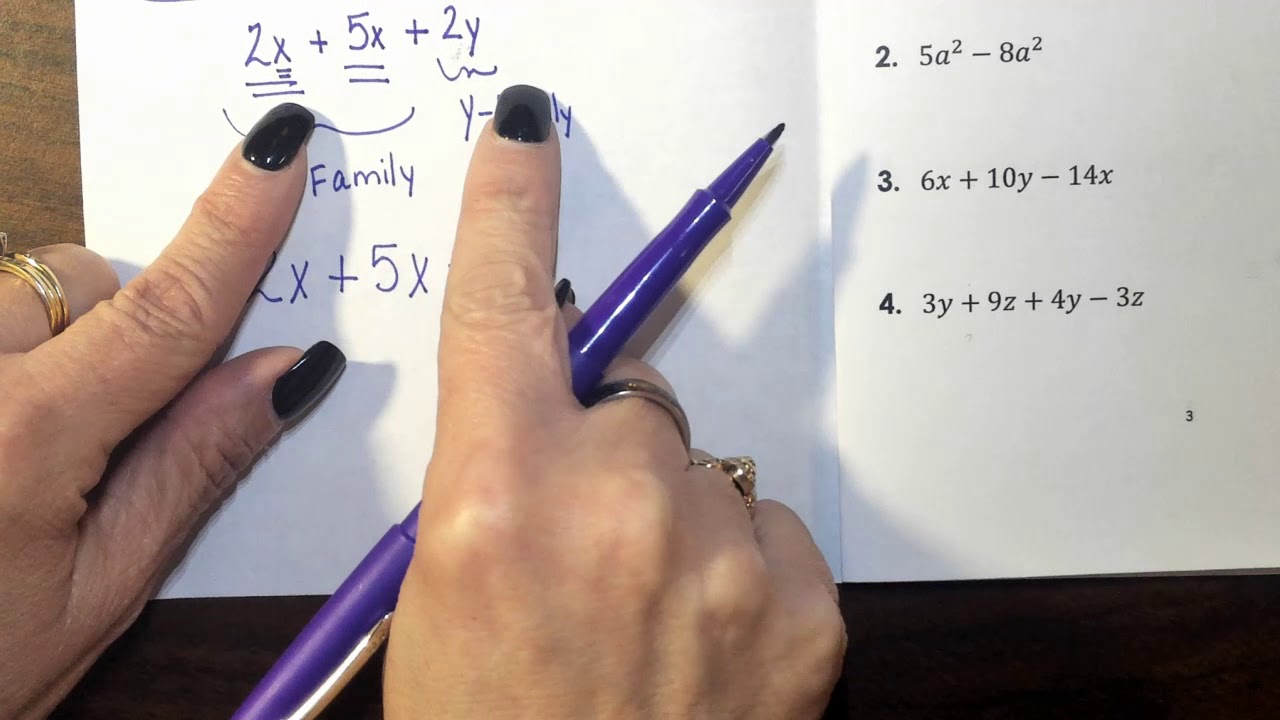 2x + 5x + 2y
Family
2x + 5x
2. 5a² − 8a²
3. 6x + 10y − 14x
4. 3y + 9z + 4y − 3z
3